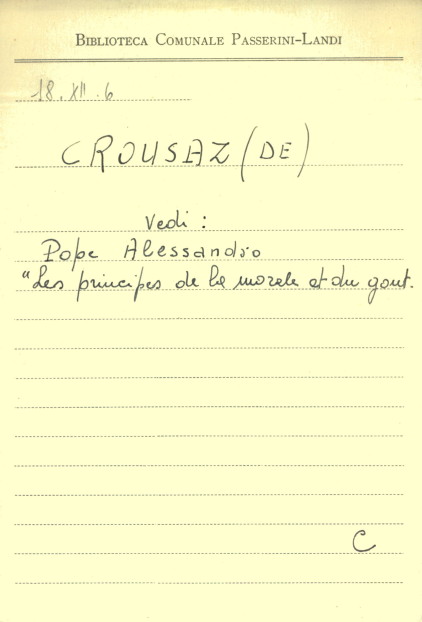 BIBLIOTECA COMUNALE PASSERINI-LANDI
18. XII. 6
CROUSAZ (DE)
Vedi :
Pope Alessandro
"Les principes de la morale et du gout.
C